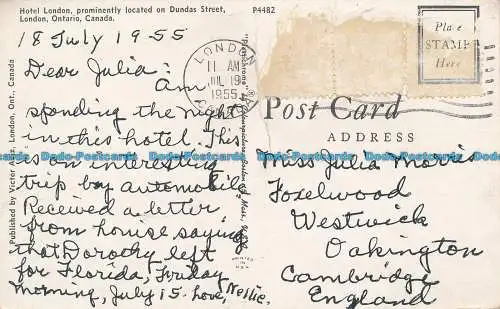 Hotel London, prominently located on Dundas Street,
London, Ontario, Canada.
P4482
18 July 1955
Dear Julia: Am
sponding the night
in this hotel. This
is an interesting
trip by automobile
Received a letter
from home saying
that Dorothy left
for Florida, Friday
morning, July 15. Love, Nellie.
Published by Victor Aziz, London, Ont., Canada
LONDON
11 AM
JUL 19
1955
Place
STAMP
Here
Post Card
ADDRESS
Miss Julia Morris
Foxelwood
Westwick
Oakington
Cambridge
England
Dodo-Postcards Dodo-Postcards Dodo-Postcards Dodo-Postcards